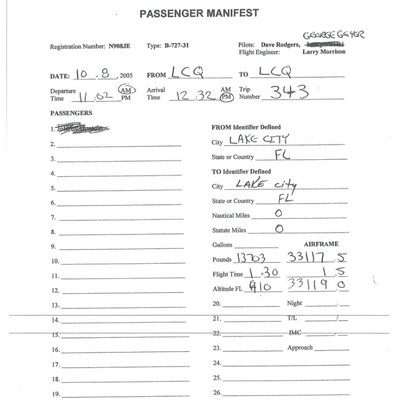 PASSENGER MANIFEST
GEORGE GEYER
Registration Number: N908JE Type: B-727-31 Pilots: Dave Rodgers,
Flight Engineer: Larry Morrison
DATE: 10.8, 2005 FROM LCQ TO LCQ
Departure Time 11.02 AM PM Arrival Time 12.32 AM PM Trip Number 343
PASSENGERS
FROM Identifier Defined
1.
City LAKE CITY
2.
State or Country FL
3.
4.
TO Identifier Defined
5.
City LAKE City
6.
State or Country FL
7.
Nautical Miles 0
8.
Statute Miles 0
9.
Gallons AIRFRAME
10.
Pounds 13703 33117.5
11.
Flight Time 1.30 1.5
12.
Altitude FL 410 33119.0
13.
20. Night
14.
21. T/L
15.
22. IMC
16.
23. Approach
17.
24.
18.
25.
19.
26.